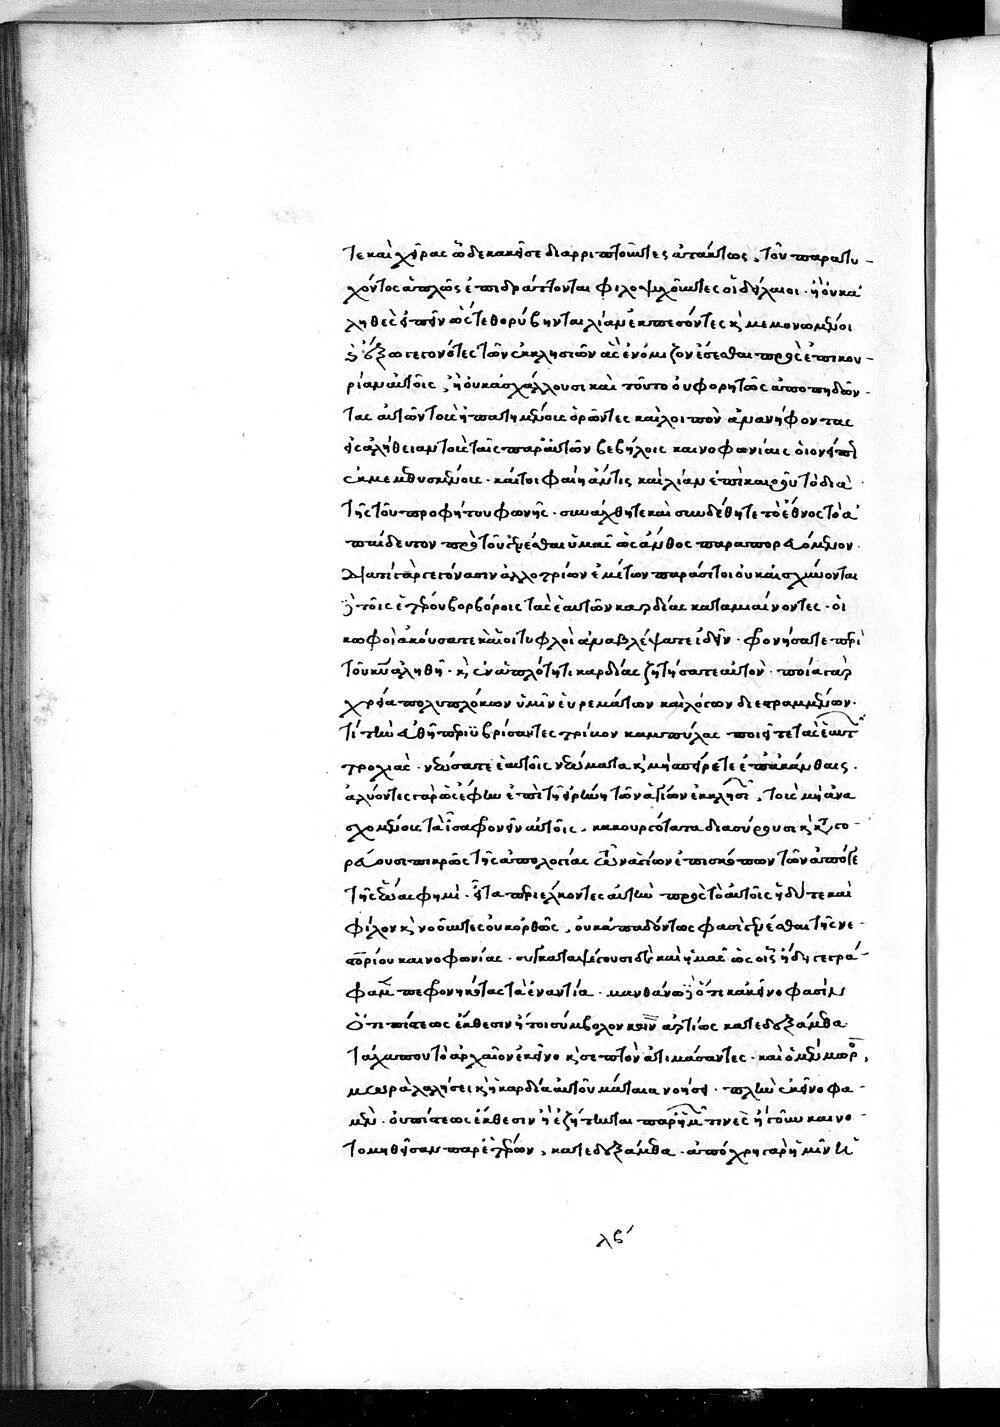 τε καὶ χεῖρας ὧδε κἀκεῖσε διαρριπτοῦντες ἀτάκτως, τοῦ παρατυ-
χόντος ἁπλῶς ἐπιδράττονται φιλοψυχοῦντες οἱ δείλαιοι. ἢ οὐκ ἀ
ληθὲς εἰπεῖν ὡς τεθορύβηνται λίαν ἐκπεσόντες κ μεμονωμένοι
κ ἔξω γεγονότες τῶν ἐκκλησιῶν ἃς ἐνόμιζον ἔσεσθαι πρὸς ἐπικου-
ρίαν αὐτοῖς, ἢ οὐκ ἀσχάλλουσι καὶ τοῦτο οὐ φορητῶς ἀποπηδῶν-
τας αὐτῶν τοὺς ἠπατημένους ὁρῶντες καὶ λοιπὸν ἀνανήφοντας
εἰς ἀλήθειαν τοὺς ταῖς παρ αὐτῶν βεβήλοις καινοφωνίαις οἱονεὶ π
ἐκμεμεθυσμένους. καίτοι φαίη ἄν τις καὶ λίαν ἐπὶ καιροῦ τὸ διὰ
τῆς τοῦ προφήτου φωνῆς. συνάχθητε καὶ συνδέθητε τὸ ἔθνος τὸ ἀ
παίδευτον πρὸ τοῦ γενέσθαι ὑμᾶς ὡς ἄνθος παραπορευόμενον.
διατί γὰρ γεγόνασιν ἀλλοτρίων ἐμέτων παράσιτοι οὐκ αἰσχύνονται
κ τοῖς ἑτέρου βορβόροις τὰς ἑαυτῶν καρδίας καταμιαίνοντες. οἱ
κωφοὶ ἀκούσατε καὶ οἱ τυφλοὶ ἀναβλέψατε ἰδεῖν. φρονήσατε περὶ
τοῦ κυ ἀληθῆ. κ ἐν ἁπλότητι καρδίας ζητήσατε αὐτὸν. ποία γὰρ
χρεία πολυπλόκων ὑμῖν εὑρεμάτων καὶ λόγων διεστραμμένων.
τί τὴν εὐθῆ περιϋβρίσαντες τρίβον καμπύλας ποιεῖτε τὰς ἑαυτ
τροχιὰς. νεώσατε ἑαυτοῖς νεώματα κ μὴ σπείρετε ἐπ' ἀκάνθαις.
ἀλύοντες γὰρ ὡς ἔφην ἐπὶ τῇ εἰρήνῃ τῶν ἁγίων ἐκκλησι, τοὺς μὴ ἀνα
σχομένους τὰ ἴσα φρονεῖν αὐτοῖς, κακουργότατα διασύρουσι κ κατηγο-
ρεύουσι πικρῶς τῆς ἀπολογίας τῶν ἁγίων ἐπισκόπων τῶν ἀπό γε
τῆς ἑώας φημὶ. εἶτα περιέλκοντες αὐτὴν πρὸς τὸ αὐτοῖς ἡδύ τε καὶ
φίλον κ νοοῦντες οὐκ ὀρθῶς, οὐκ ἀπᾳδόντως φασὶ γενέσθαι τῆς νε
στορίου καινοφωνίας. συγκαταψέγουσι δὲ καὶ ἡμᾶς ὡς οἷς ἤδη γεγρά-
φαμ πεφρονηκότας τὰ ἐναντία. μανθάνω δὲ ὅτι κἀκεῖνο φασὶν
ὅτι πίστεως ἔκθεσιν ἤτοι σύμβολον καινὸν ἀρτίως κατεδεξάμεθα
τάχα που τὸ ἀρχαῖον ἐκεῖνο κ σεπτὸν ἀτιμάσαντες. καὶ ὁ μὲν μωρ,
μωρὰ λαλήσει κ ἡ καρδία αὐτοῦ μάταια νοήσει. πλὴν ἐκεῖνο φα-
μὲν. οὐ πίστεως ἔκθεσιν ἢ ἐζήτηνται παρ ἡμ τινὲς ἤγουν καινο-
τομηθεῖσαν παρ ἑτέρων, κατεδεξάμεθα. ἀπόχρη γὰρ ἡμῖν ἡ
λβ´